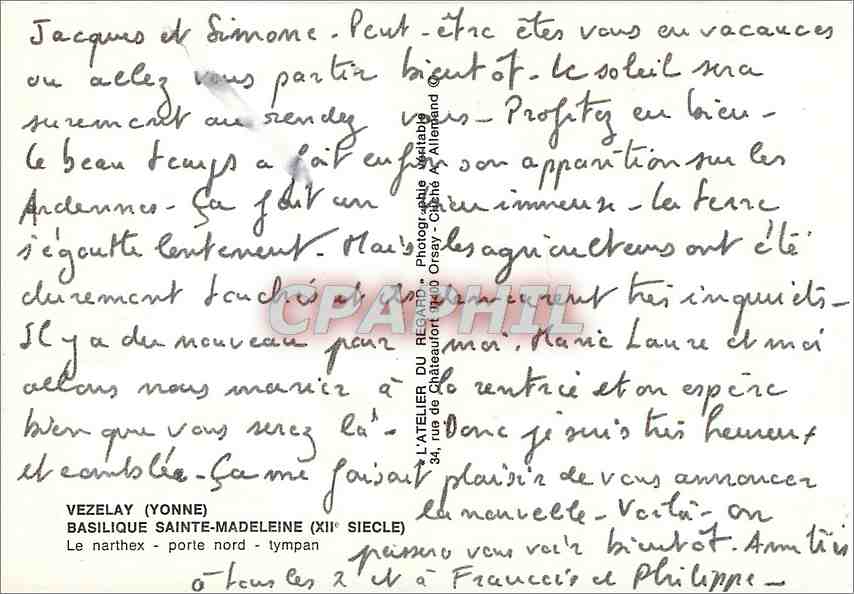 Jacques et Simone - Peut-être êtes vous en vacances
ou allez vous partir bientôt - le soleil sera
surement au rendez vous - Profitez en bien -
le beau temps a fait enfin son apparition sur les
Ardennes - Ça fait un bien immense - la terre
s'égoutte lentement - Mais les agriculteurs ont été
durement touchés et ils demeurent très inquiets -
Il y a du nouveau pour moi. Marie Laure et moi
allons nous marier à la rentrée et on espère
bien que vous serez là - Donc je suis très heureux
et comblée - Ça me faisait plaisir de vous annoncer
la nouvelle - Voilà - on
passera vous voir bientôt. Amitiés
à tous les 2 et à Francois et Philippe -
VEZELAY (YONNE)
BASILIQUE SAINTE-MADELEINE (XIIe SIECLE)
Le narthex - porte nord - tympan
"L'ATELIER DU REGARD" Photographie véritable
34, rue de Châteaufort 91400 Orsay - Cliché A. Allemand ©
CPAPHIL